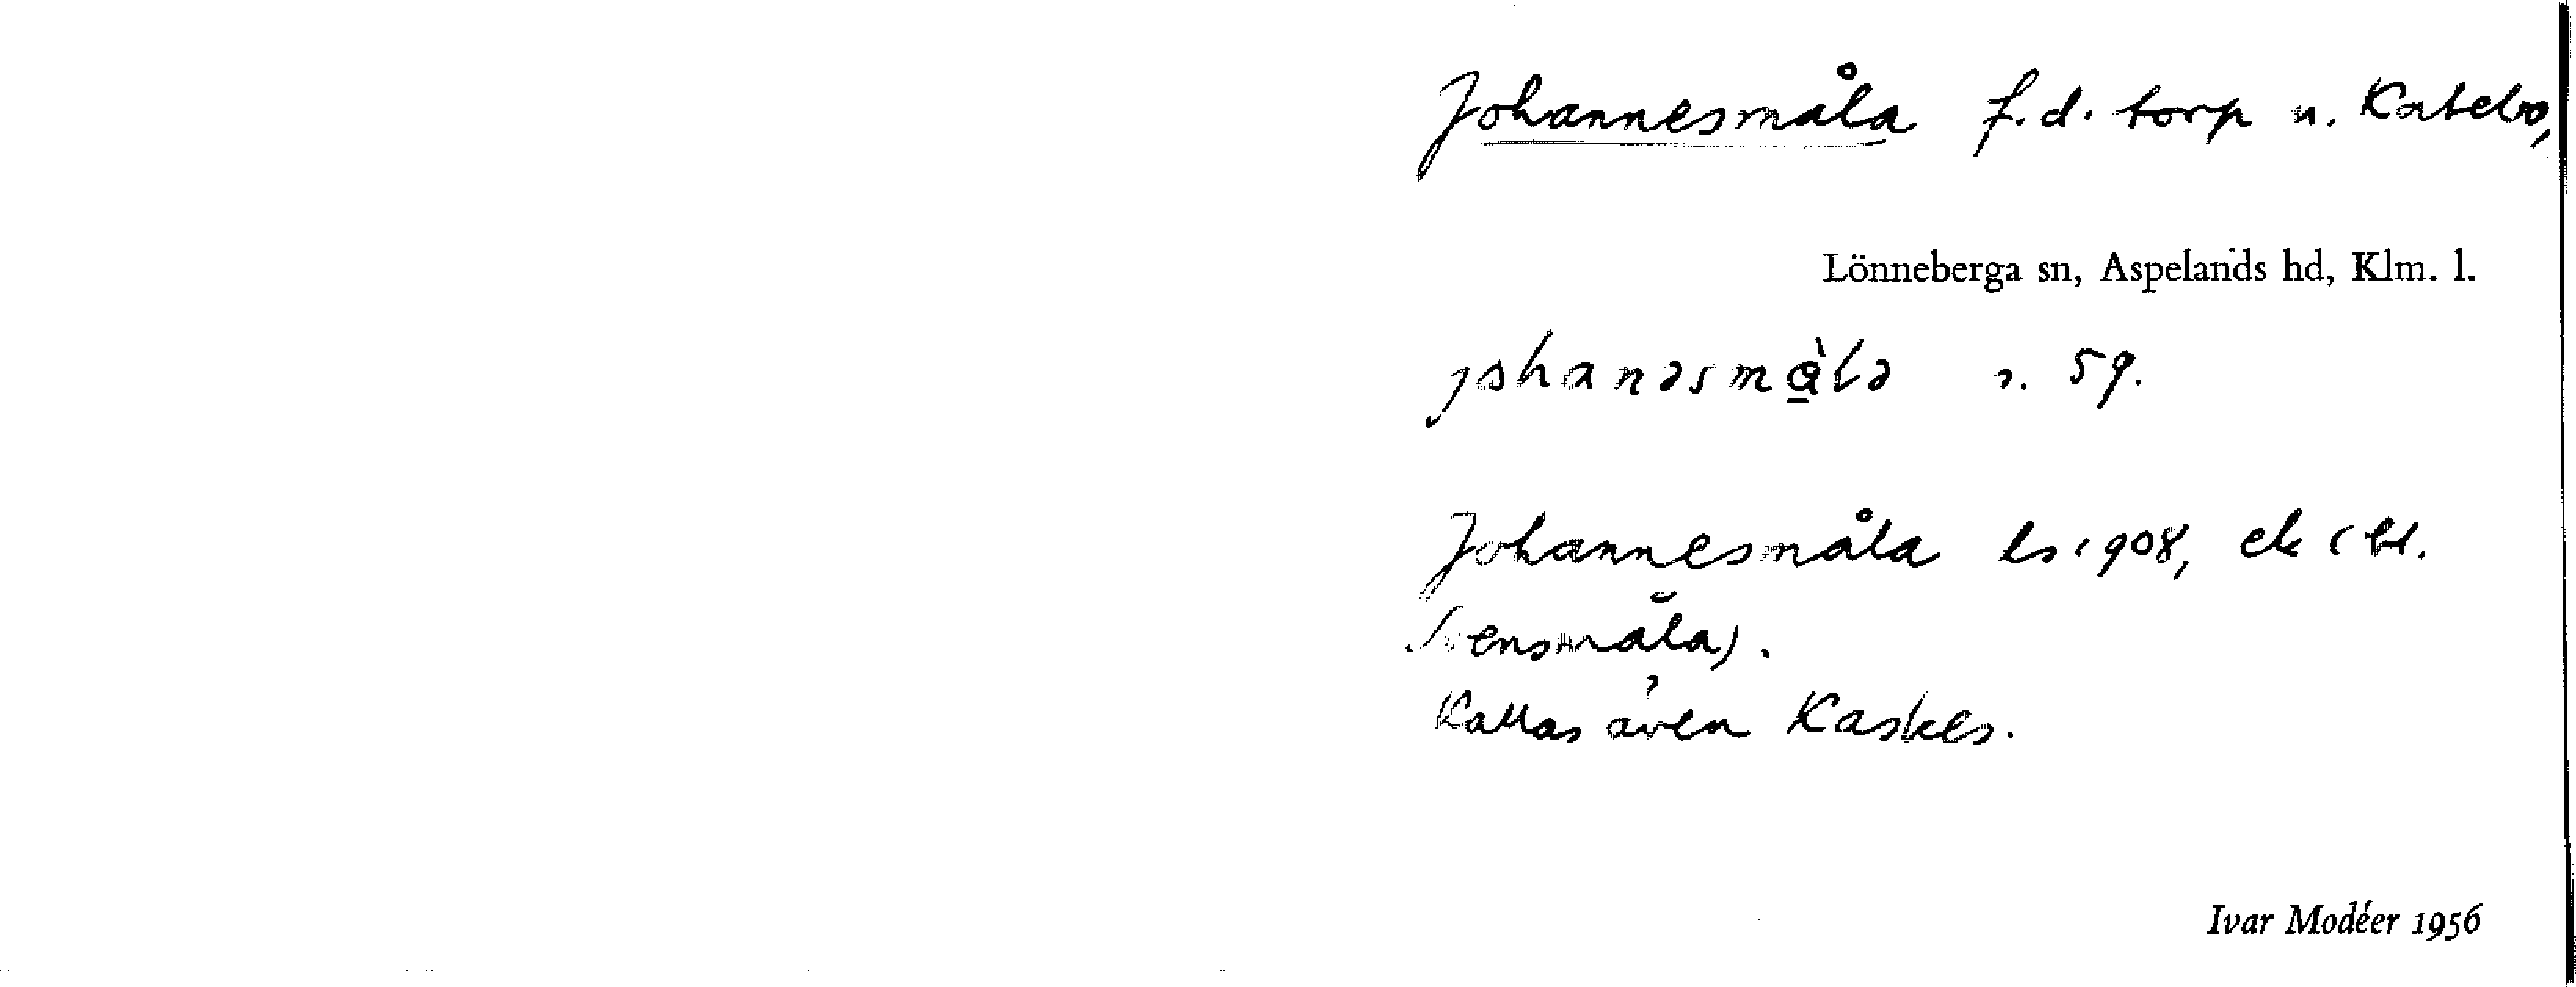 Johannesmåla f.d. torp u. Katebo,
Lönneberga sn, Aspelands hd, Klm. l.
johanəsmåla 59.
Johannesmåla ls 1908, ek ( bl.
Svensmåla).
Kallas även Kaskes.
Ivar Modéer 1956